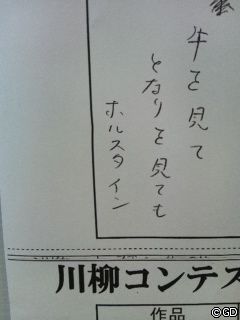 牛を見て
となりを見ても
ホルスタイン
川柳コンテス
作品
©GD